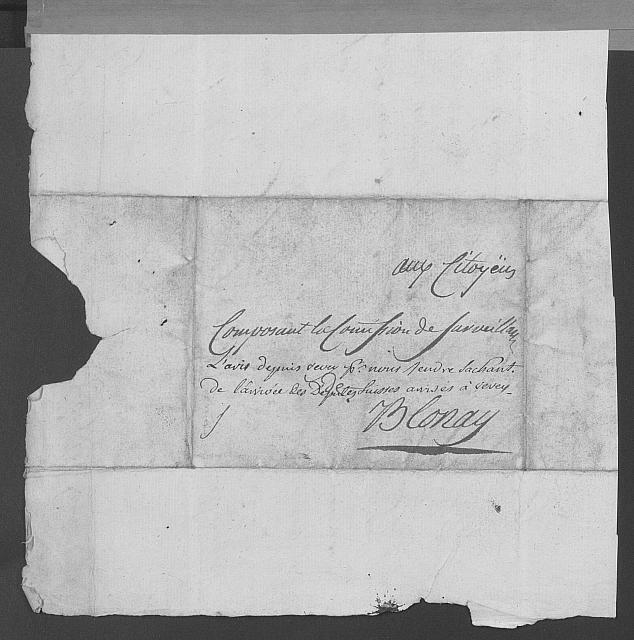 aux Citoÿens
Composant la Commission de Surveillance
L'avis depuis vevey pr nous rendre Sachant
de l'arrivée des Députés Suisses arrivés à vevey
Blonay